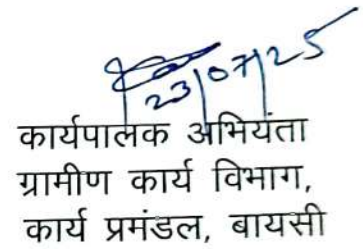 23/07/25
कार्यपालक अभियंता
ग्रामीण कार्य विभाग,
कार्य प्रमंडल, बायसी